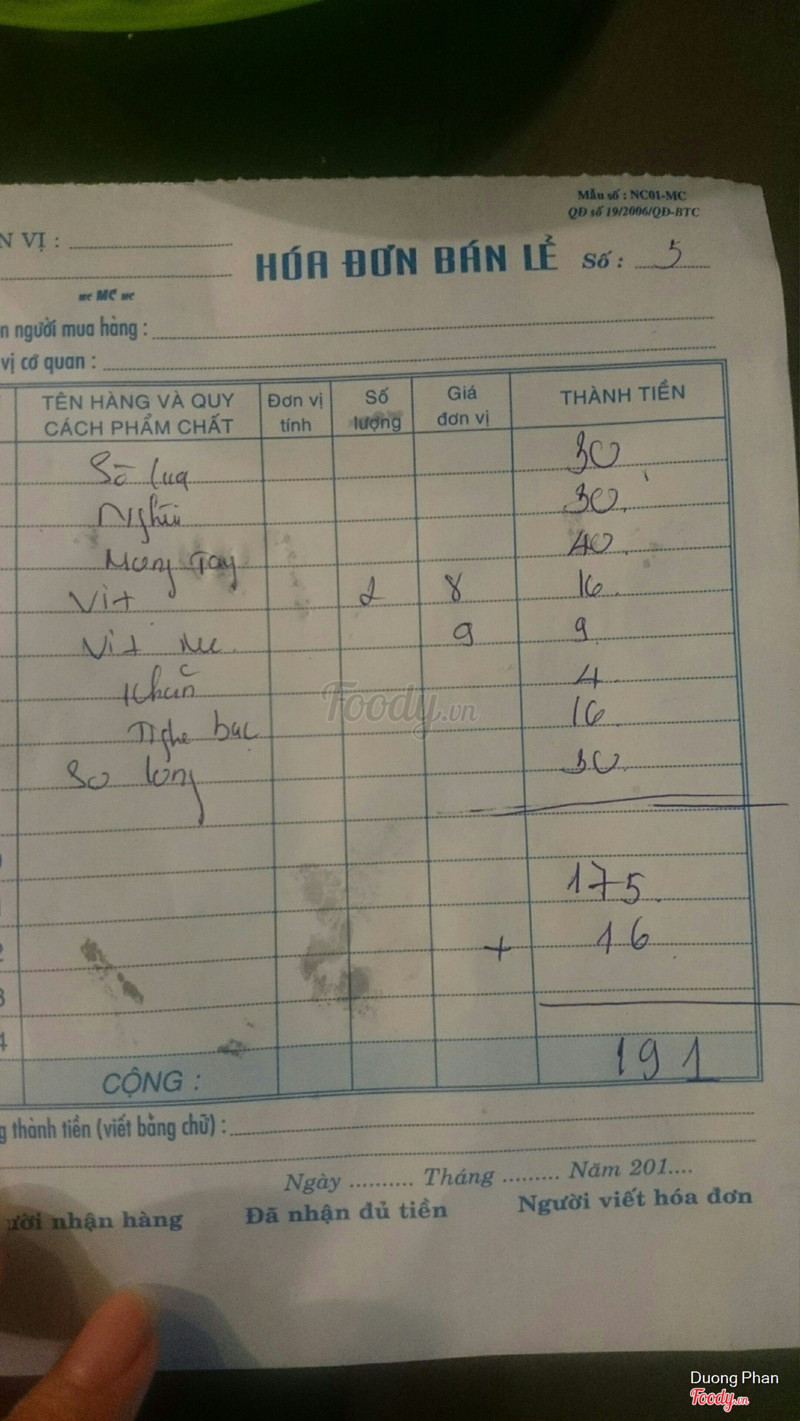 Mẫu số : NC01-MC
QĐ số 19/2006/QĐ-BTC
N VỊ :
HÓA ĐƠN BÁN LẺ Số : 5
MC
n người mua hàng :
vị cơ quan :
TÊN HÀNG VÀ QUY CÁCH PHẨM CHẤT Đơn vị tính Số lượng Giá đơn vị THÀNH TIỀN
Sò lụa 30
Nghêu 30
Móng Tay 40
Vit 2 8 16
Vit 9 9
Khăn 4
bạc 16
So lông 30
175
+ 16
2
3
4
CỘNG : 191
g thành tiền (viết bằng chữ) :
Ngày .......... Tháng ......... Năm 201....
ười nhận hàng Đã nhận đủ tiền Người viết hóa đơn
Foody.vn
Duong Phan
Foody.vn